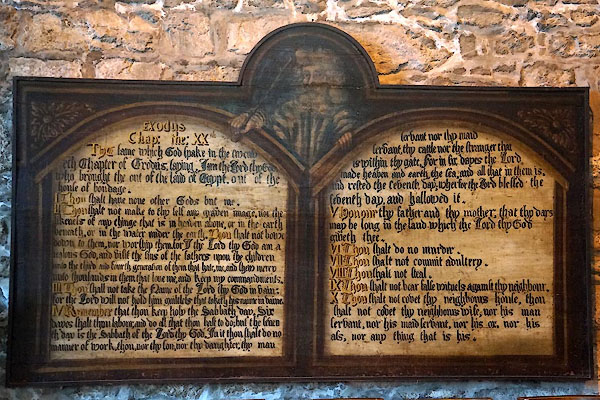 EXODUS
Chap: the: XXth
The same which God spake in the twenti
eth Chapter of Exodus, saying, I am the Lord thy God
who brought thee out of the land of Egypt, out of the
house of bondage.
I Thou shalt have none other Gods but me.
II Thou shalt not make to thy self any graven image, nor the
likeness of any thing that is in heaven above, or in the earth
beneath, or in the water under the earth. Thou shalt not bow
down to them, nor worship them, for I the Lord thy God am a
jealous God, and visit the sins of the fathers upon the children
unto the third and fourth generation of them that hate me, and shew mercy
unto thousands in them that love me, and keep my commandments.
III Thou shalt not take the Name of the Lord thy God in vaine,
for the Lord will not hold him guiltless that taketh his name in vaine.
IV Remember that thou keep holy the Sabbath day, Six
dayes shalt thou labour, and do all that thou hast to do; but the seven
th day is the Sabbath of the Lord thy God. In it thou shalt do no
manner of work, thou, nor thy son, nor thy daughter, thy man
servant nor thy maid
servant, thy cattle nor the stranger that
is within thy gate. For in six dayes the Lord
made heaven and earth, the sea, and all that in them is.
and rested the seventh day, wherfor the Lord blessed the
seventh day, and hallowed it.
V Honour thy father and thy mother; that thy days
may be long in the land which the Lord thy God
giveth thee.
VI Thou shalt do no murder.
VII Thou shalt not commit adultery.
VIII Thou shalt not steal.
IX Thou shalt not bear false witness against thy neighbour.
X Thou shalt not covet thy neighbours house, thou
shalt not covet thy neighbours wife, nor his man
servant, nor his maid servant, nor his ox, nor his
ass, nor any thing that is his.